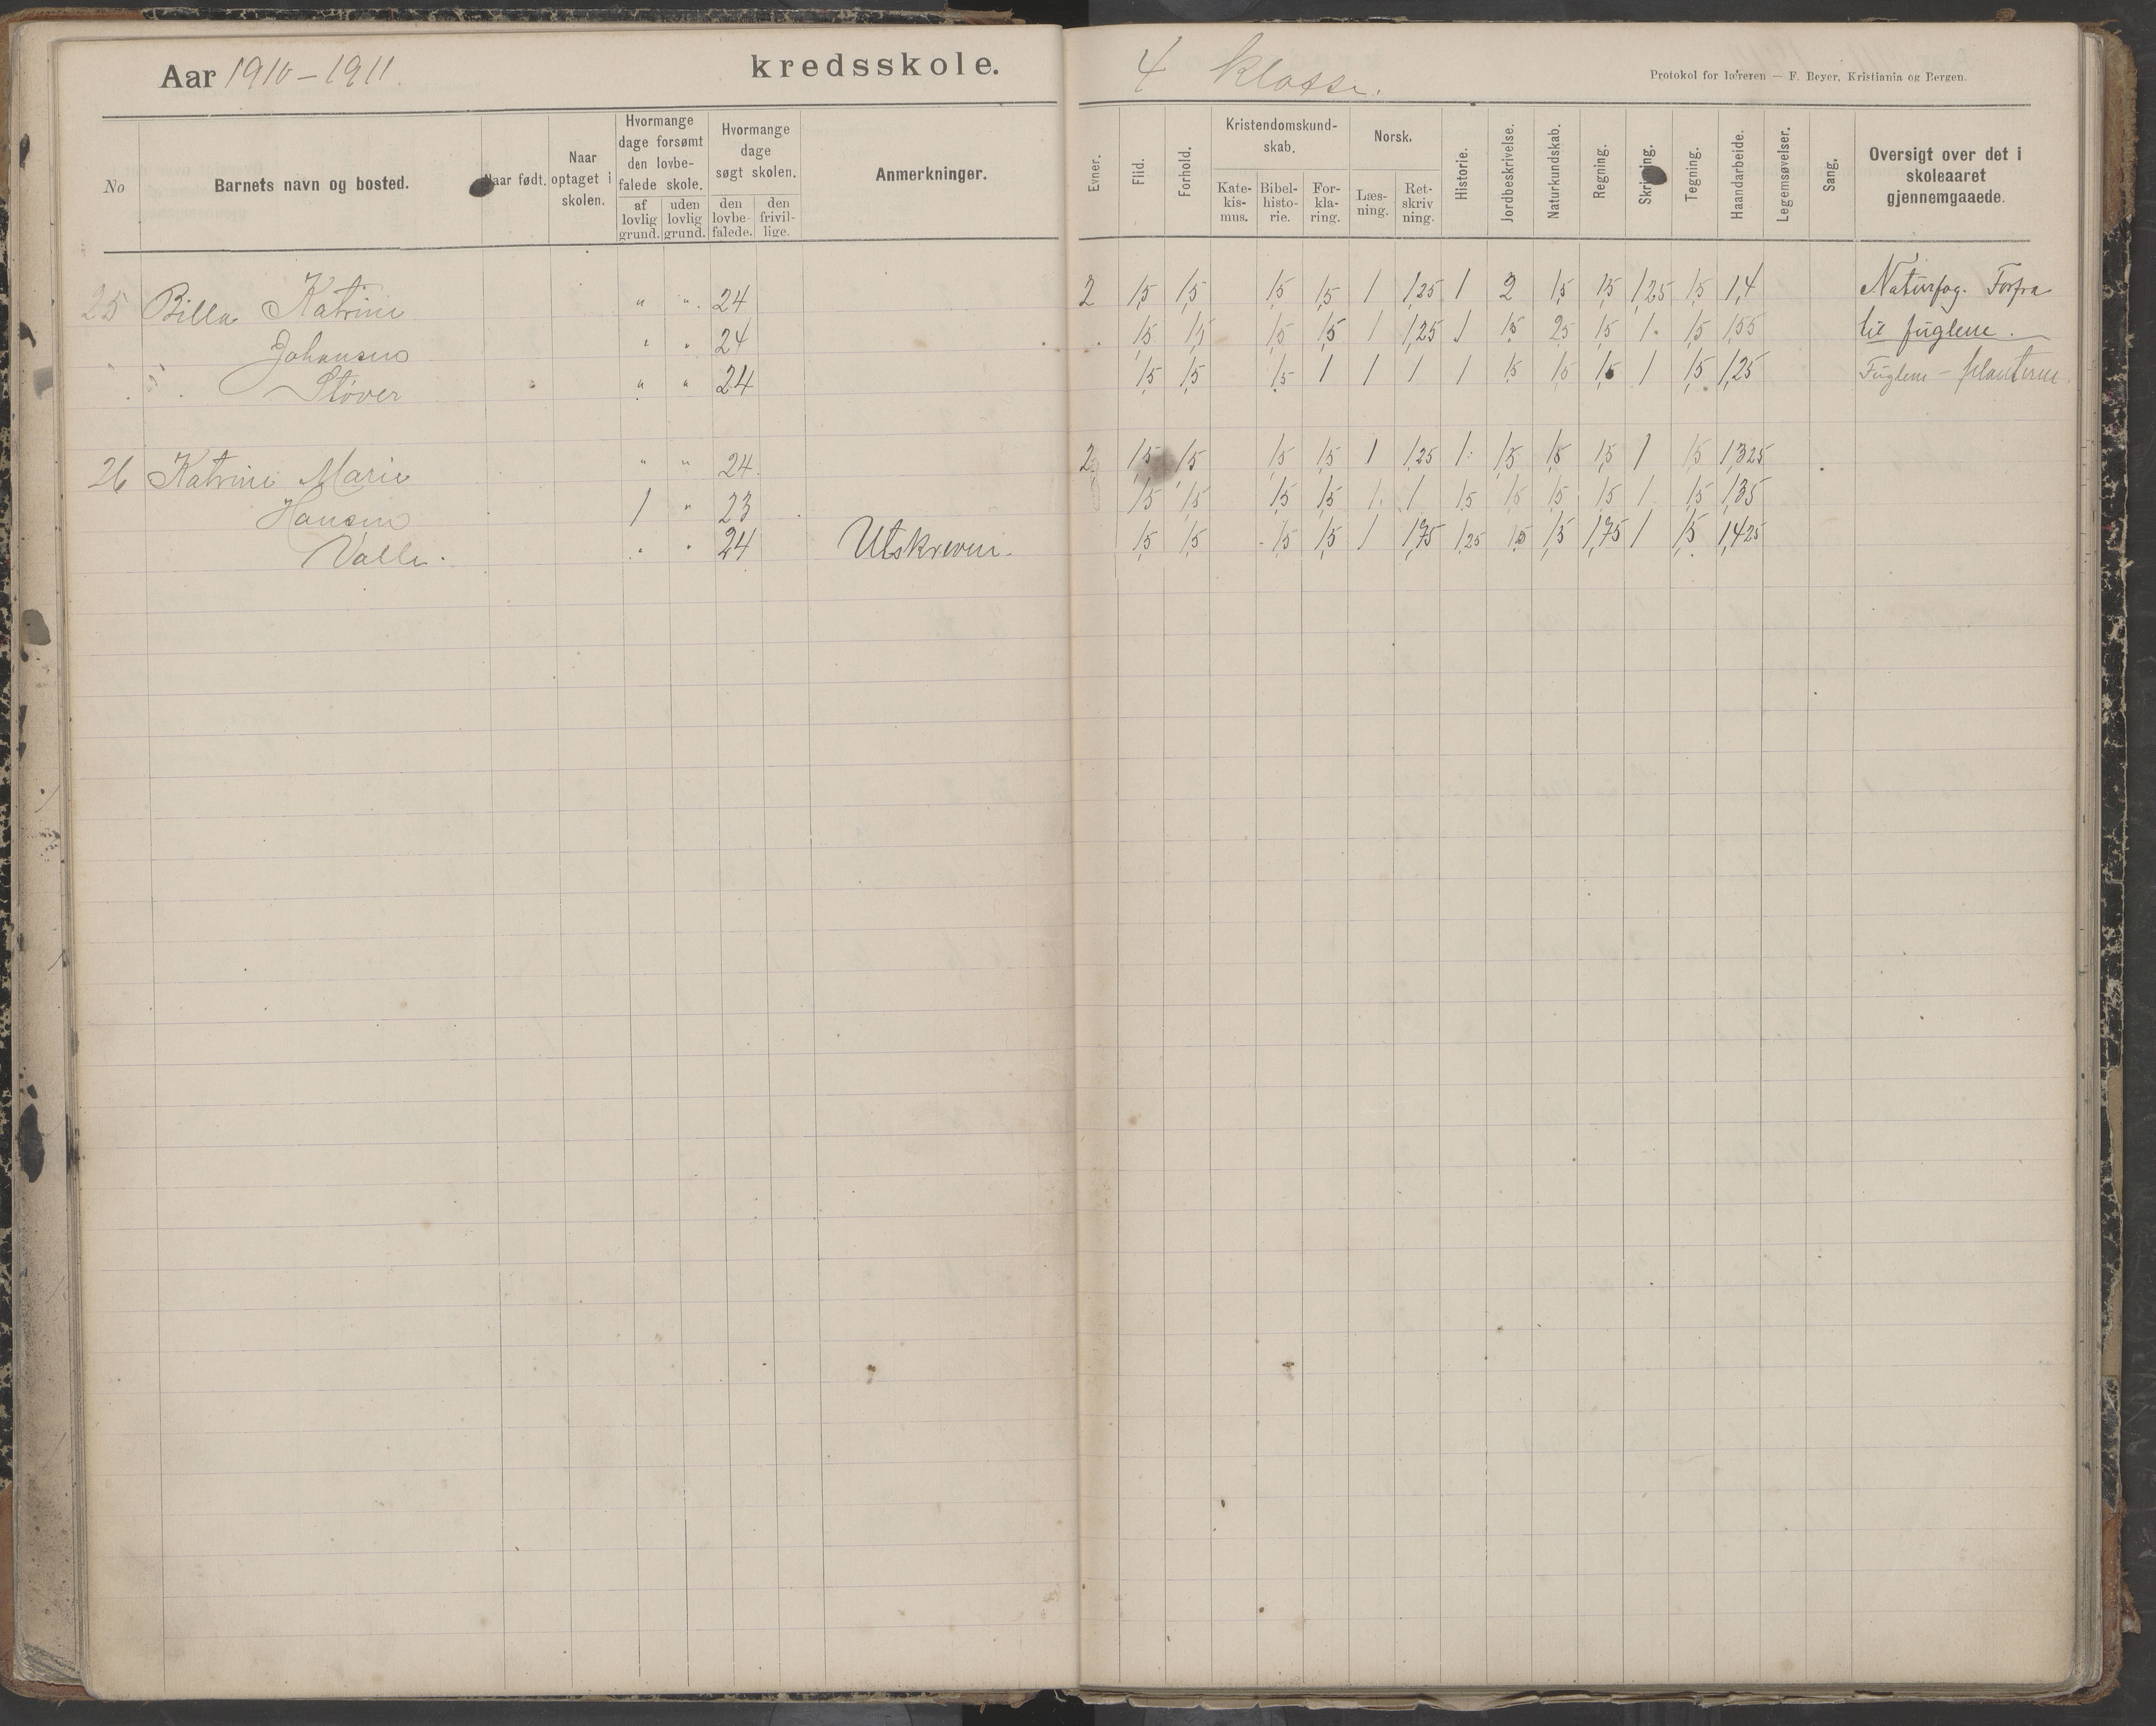 Aar 1910-1911. kredsskole. 4 klasse.
Protokol for læreren — F. Beyer, Kristiania og Bergen.
No
Barnets navn og bosted.
Naar født.
Naar optaget i skolen.
Hvormange dage forsømt den lovbefalede skole.
af lovlig grund.
uden lovlig grund.
Hvormange dage søgt skolen.
den lovbefalede.
den frivillige.
Anmerkninger.
Evner.
Flid.
Forhold.
Kristendomskundskab.
Katekismus.
Bibelhistorie.
Forklaring.
Norsk.
Læsning.
Retskrivning.
Historie.
Jordbeskrivelse.
Naturkundskab.
Regning.
Skrivning.
Tegning.
Haandarbeide.
Legemsøvelser.
Sang.
Oversigt over det i skoleaaret gjennemgaaede.
25 Billa Katrine " " 24 2 1,5 1,5 1,5 1,5 1 1,25 1 2 1,5 1,5 1,25 1,5 1,4 Naturfag. Forfra
Johansen " " 24 1,5 1,5 1,5 1,5 1 1,25 1 1,5 25 1,5 1 1,5 1,55 til fuglene.
Støver " " 24 1,5 1,5 1,5 1 1 1 1 1,5 1,5 1,5 1 1,5 1,25 Fuglene - planterne
26 Katrine Marie " " 24 2 1,5 1,5 1,5 1,5 1 1,25 1 1,5 1,5 1,5 1 1,5 1,325
Hansen 1 " 23 1,5 1,5 1,5 1,5 1 1 1,5 1,5 1,5 1,5 1 1,5 1,35
Valle. " " 24 Utskreven. 1,5 1,5 1,5 1,5 1 1,75 1,25 1,5 1,5 1,75 1 1,5 1,425